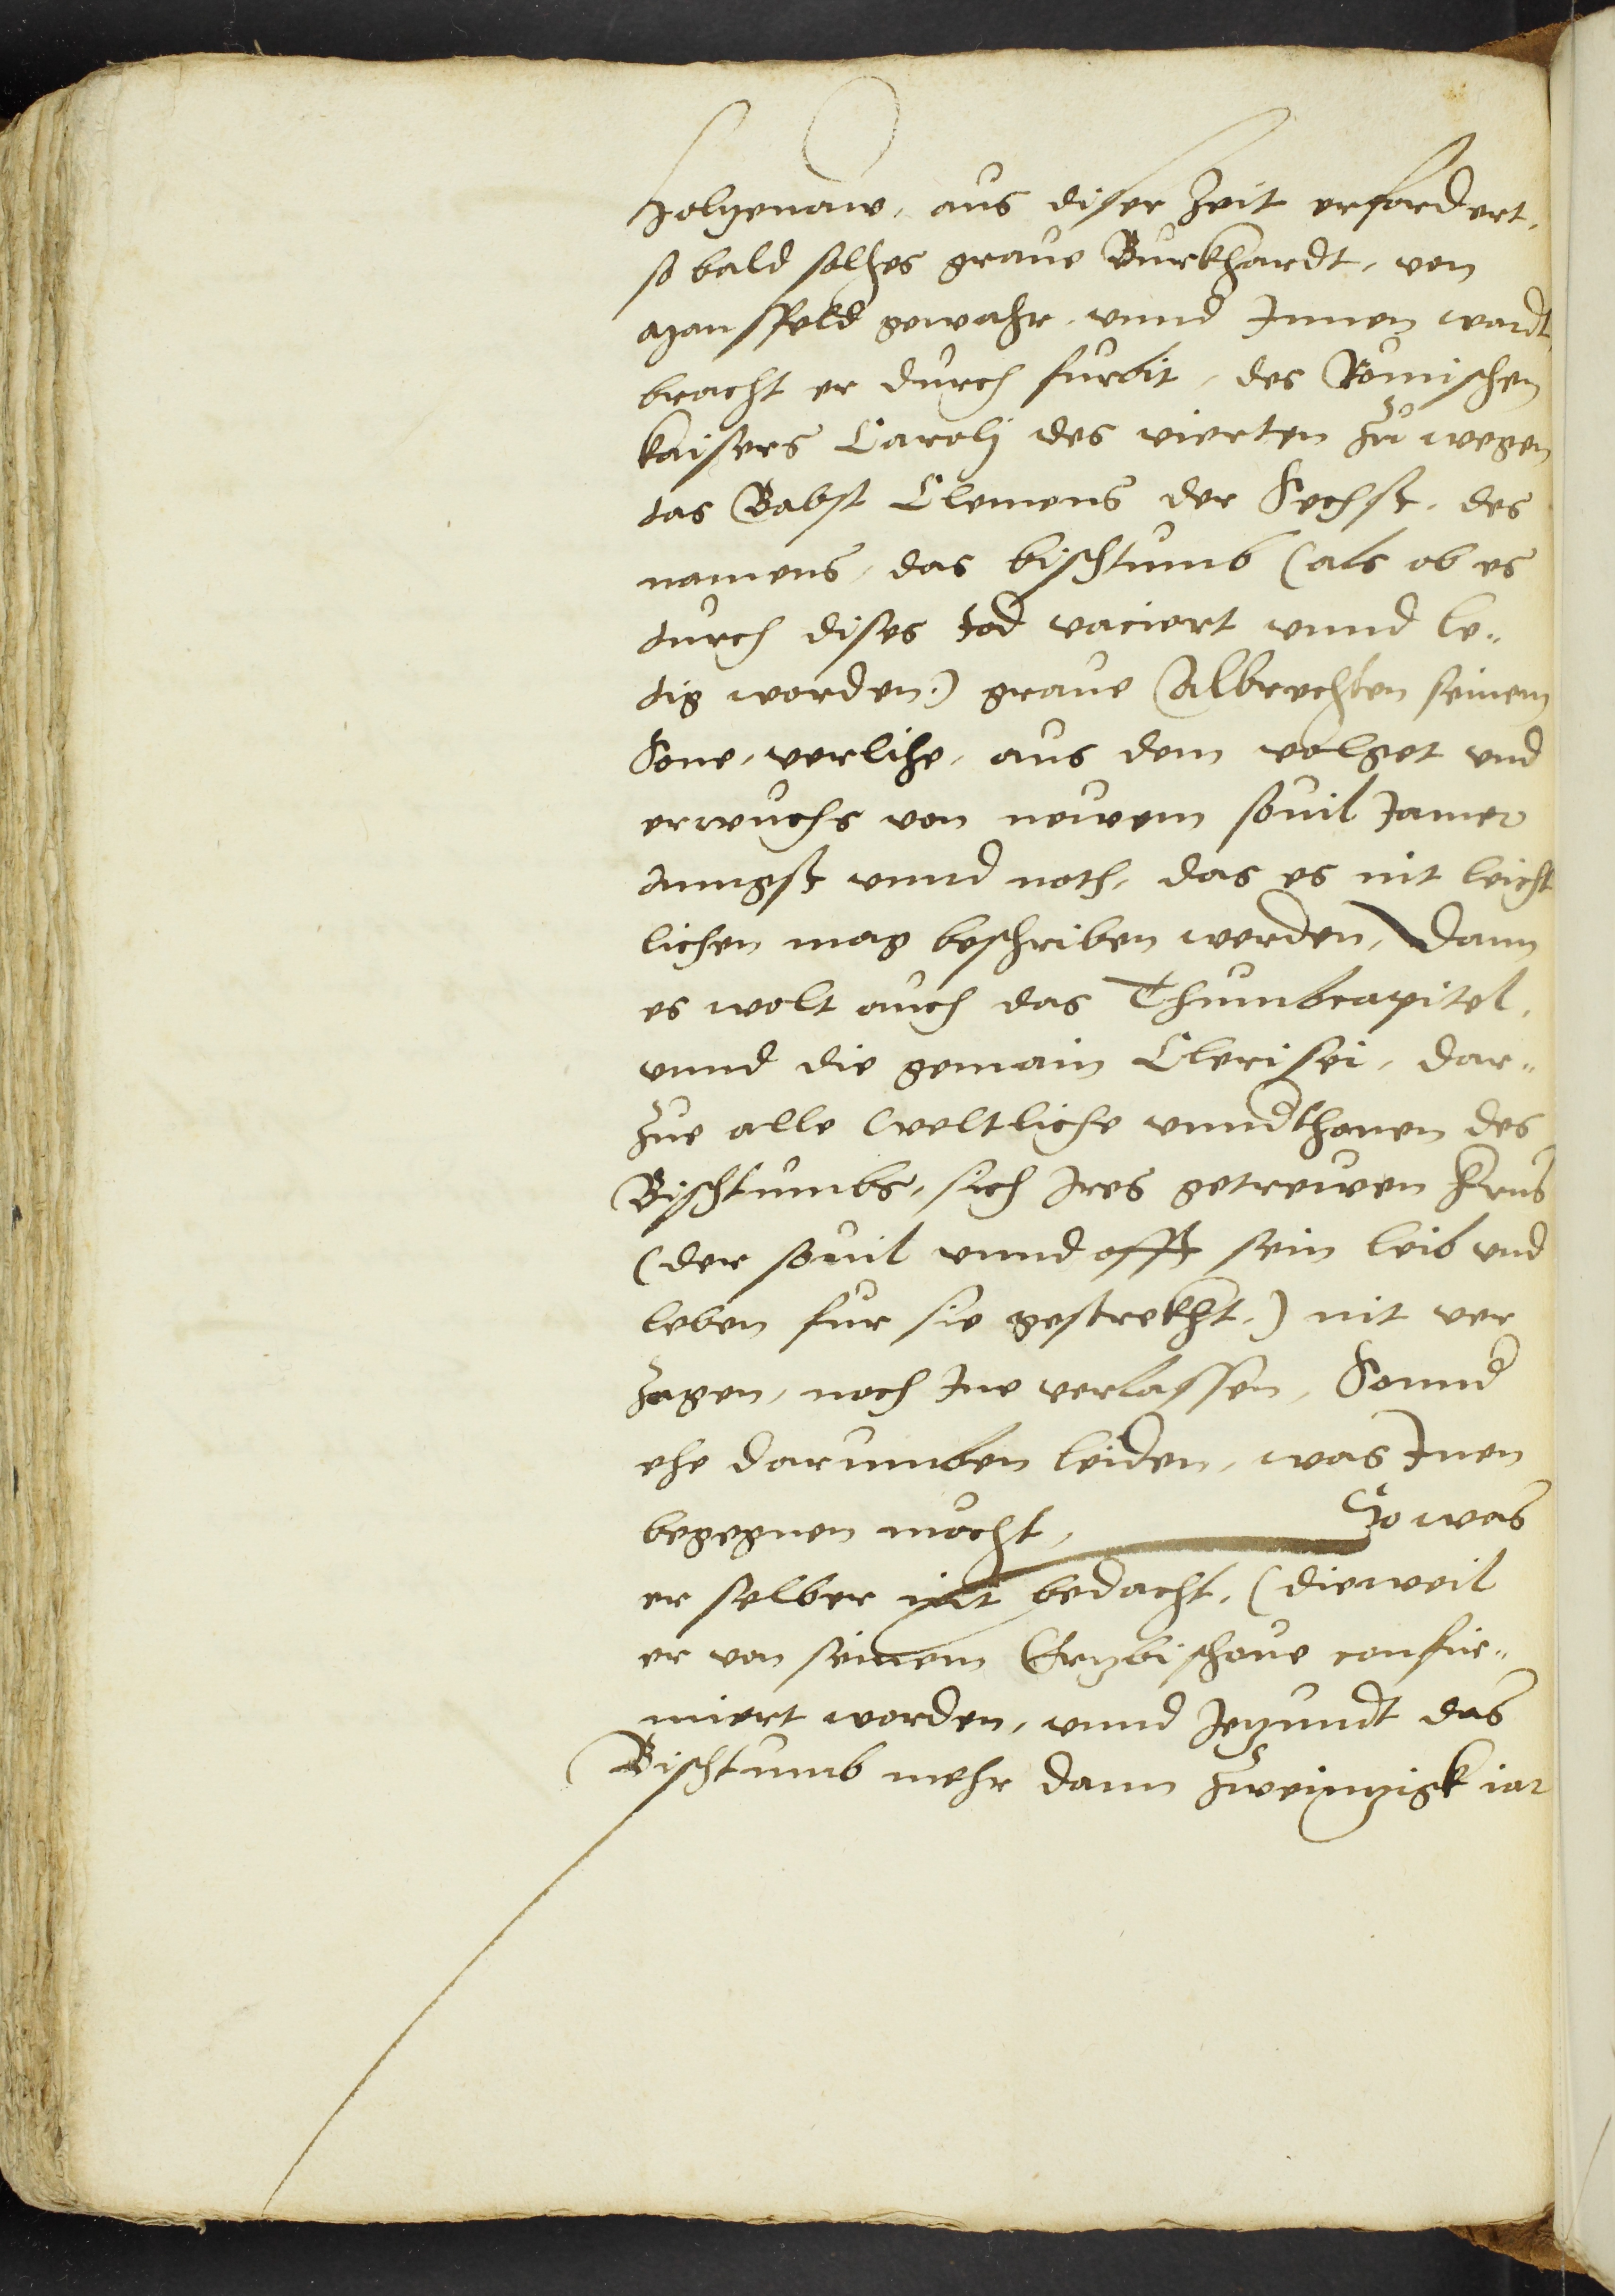 Holgenaw, aus diser Zeit erfordert,
so bald solches graue Burkhardt, von
Mansfeld gewahr, vnnd Innen wardt,
bracht er durch furbit, des Romischen
kaisers Carolj des vierten zů wegen
das Babst Clemens der Sechst, des
namens, das bischtumb (als ob es
durch dises tod vaciert vnnd le-
dig worden) graue Albrechten seinem
Sone, verlihe, aus dem volget vnd
erwuchs von newem souil Jamer
anngst vnnd noth, das es nit leicht
lichen mag beschriben werden, Dann
es wolt auch das Thumbcapitel,
vnnd die gemain Clerisei, dar-
zue alle weltliche vnndthonen des
Bischtumbs, sich Ires getrewen Hrns
(der souil vnnd offt sein leib vnd
leben fur sie gestrekht,) nit ver
zagen, noch Ine verlassen, Sonnd
ehe darumben leiden, was Inen
begegnen mocht, So was
er selber nit bedacht, (dieweil
er von seinem Erzbischoue confir-
miert worden, vnnd Jezundt das
Bischtumb mehr dann zweinzigk iar